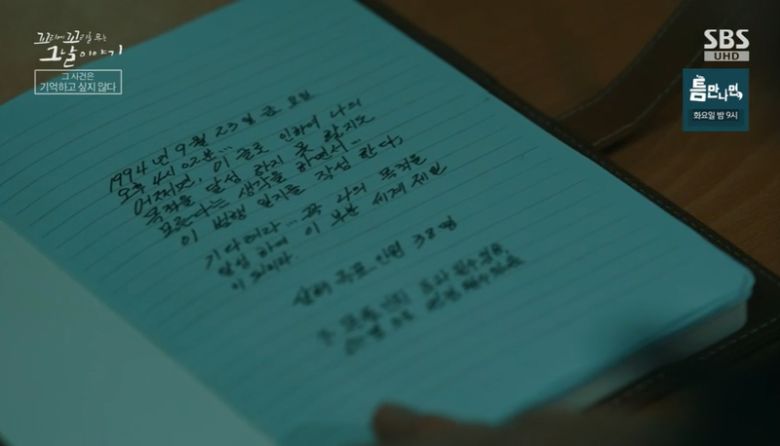 꼬리에 꼬리를 무는
그날 이야기
그 사건은
기억하고 싶지 않다
SBS
UHD
틈만나면,
화요일 밤 9시
1994년 9월 23일 금요일
오후 4시 02분...
어쩌면, 이 글로 인하여 나의
목적을 달성 하지 못 할지도
모른다는 생각을 하면서...
이 범행 일지를 작성 한다,
기다려라... 꼭 나의 목적을
달성 하여 이 부분 세계 제일
이 되리라
살해 목표 인원 38명